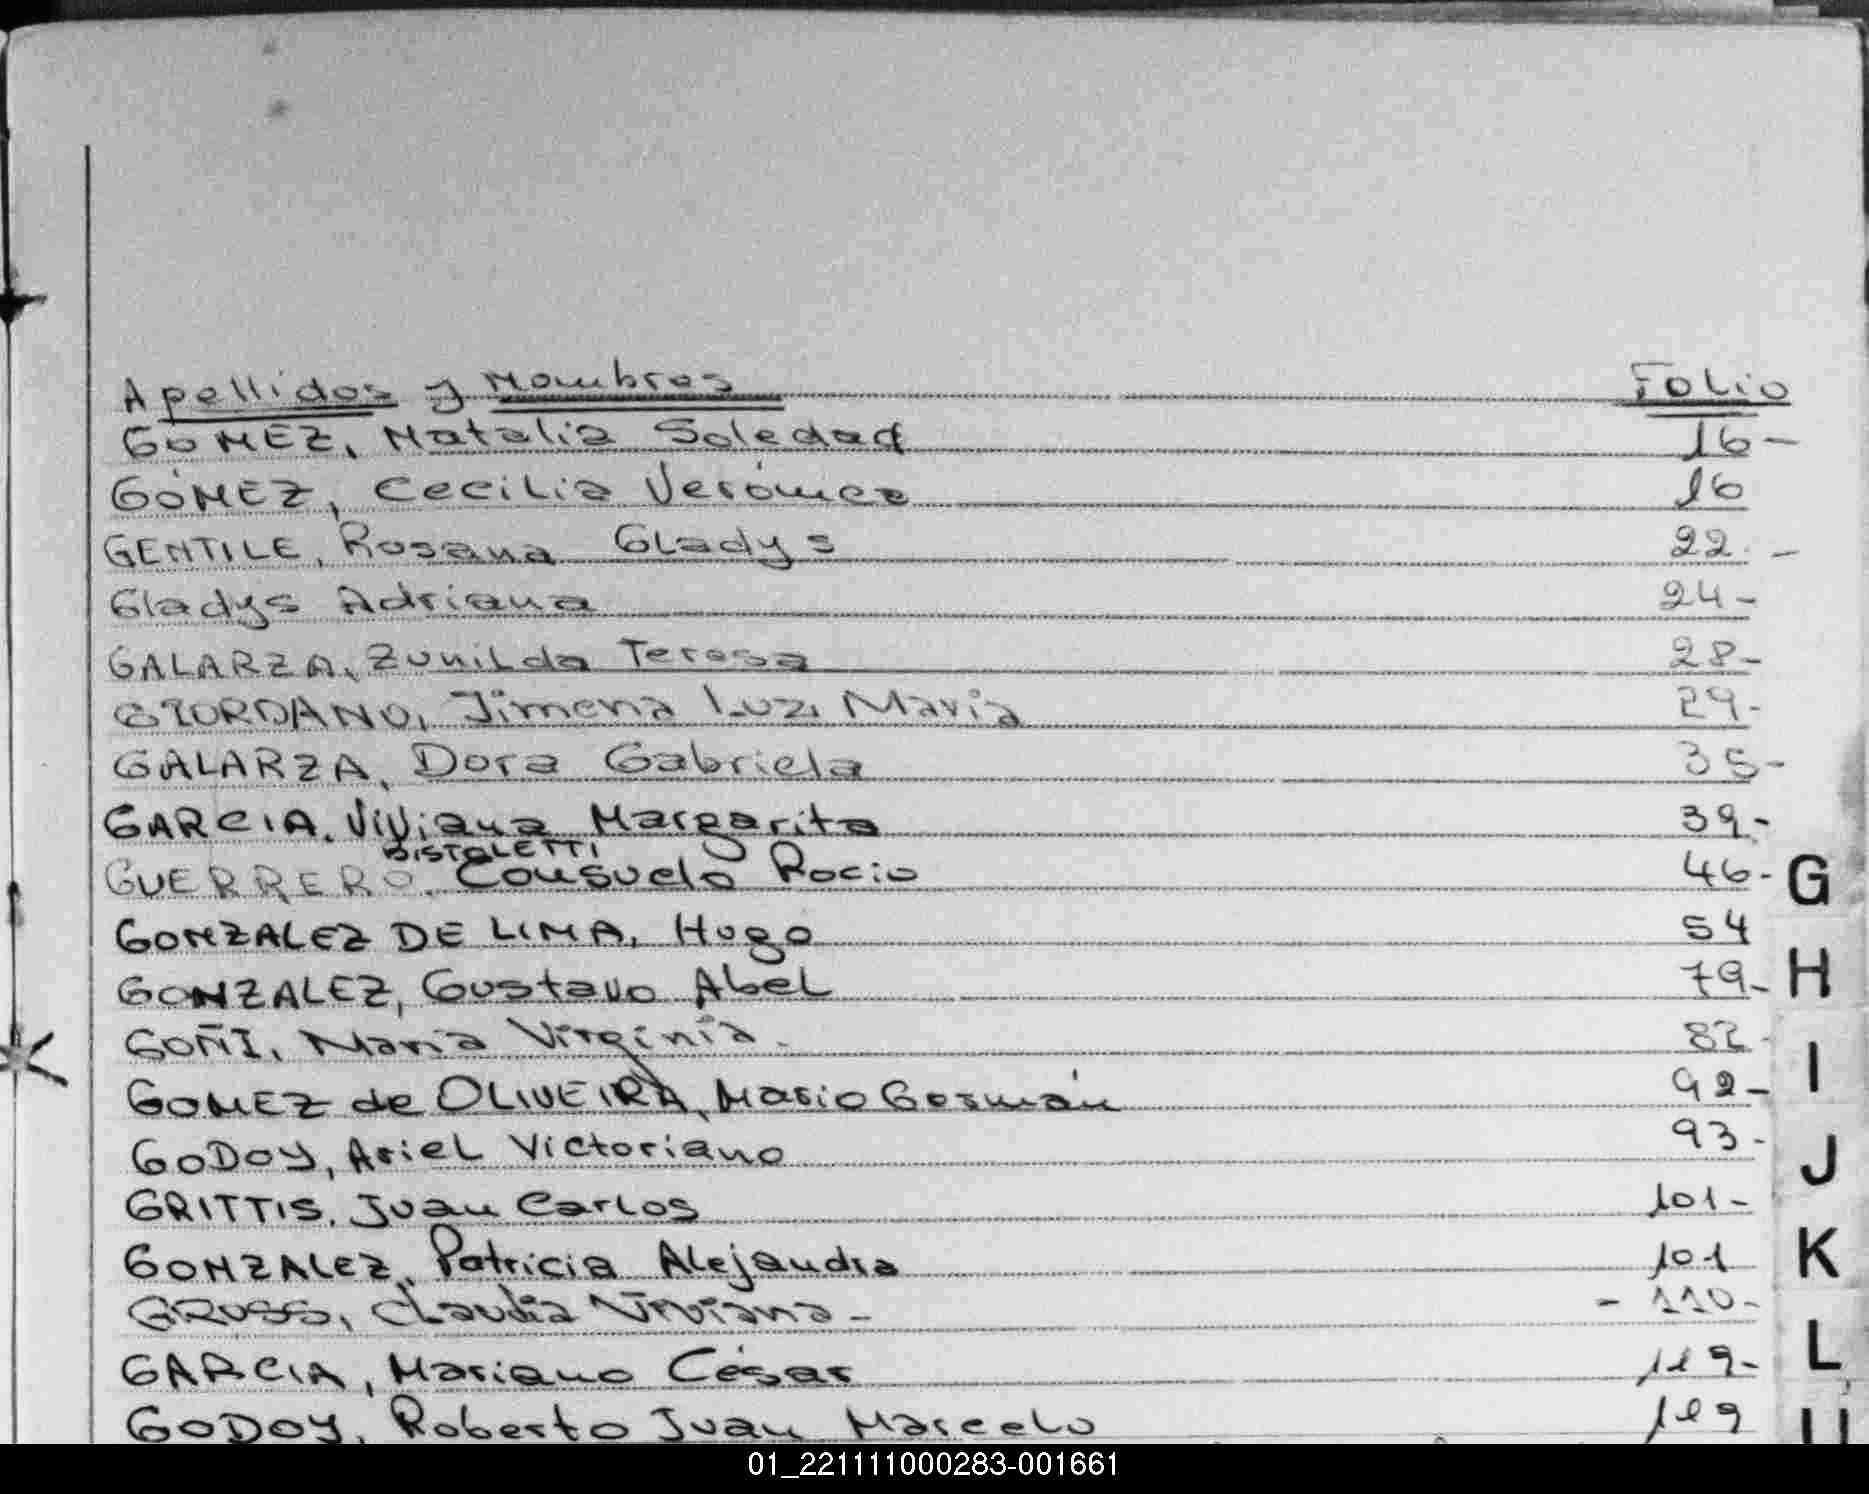 Apellidos y Nombres Folio
GOMEZ, Natalia Soledad 16-
GÓMEZ, Cecilia Verónica 16
GENTILE, Rosana Gladys 22.-
Gladys Adriana 24-
GALARZA, Zunilda Teresa 28-
GIORDANO, Jimena Luz, Maria 29-
GALARZA, Dora Gabriela 35-
GARCIA, Viviana Margarita 39-
DISTOLETTI
GUERRERO, Consuelo Rocio 46-
G
GONZALEZ DE LIMA, Hugo 54
GONZALEZ, Gustavo Abel 79-
H
GOÑI, Maria Virginia. 82-
I
GOMEZ de OLIVEIRA, Mario Germán 92-
GODOY, Ariel Victoriano 93-
J
GRITTIS, Juan Carlos 101-
GONZALEZ, Patricia Alejandra 101
K
GROSS, Claudia Viviana- - 110-
GARCIA, Mariano César 119-
L
GODOY, Roberto Juan Marcelo 119
01_221111000283-001661